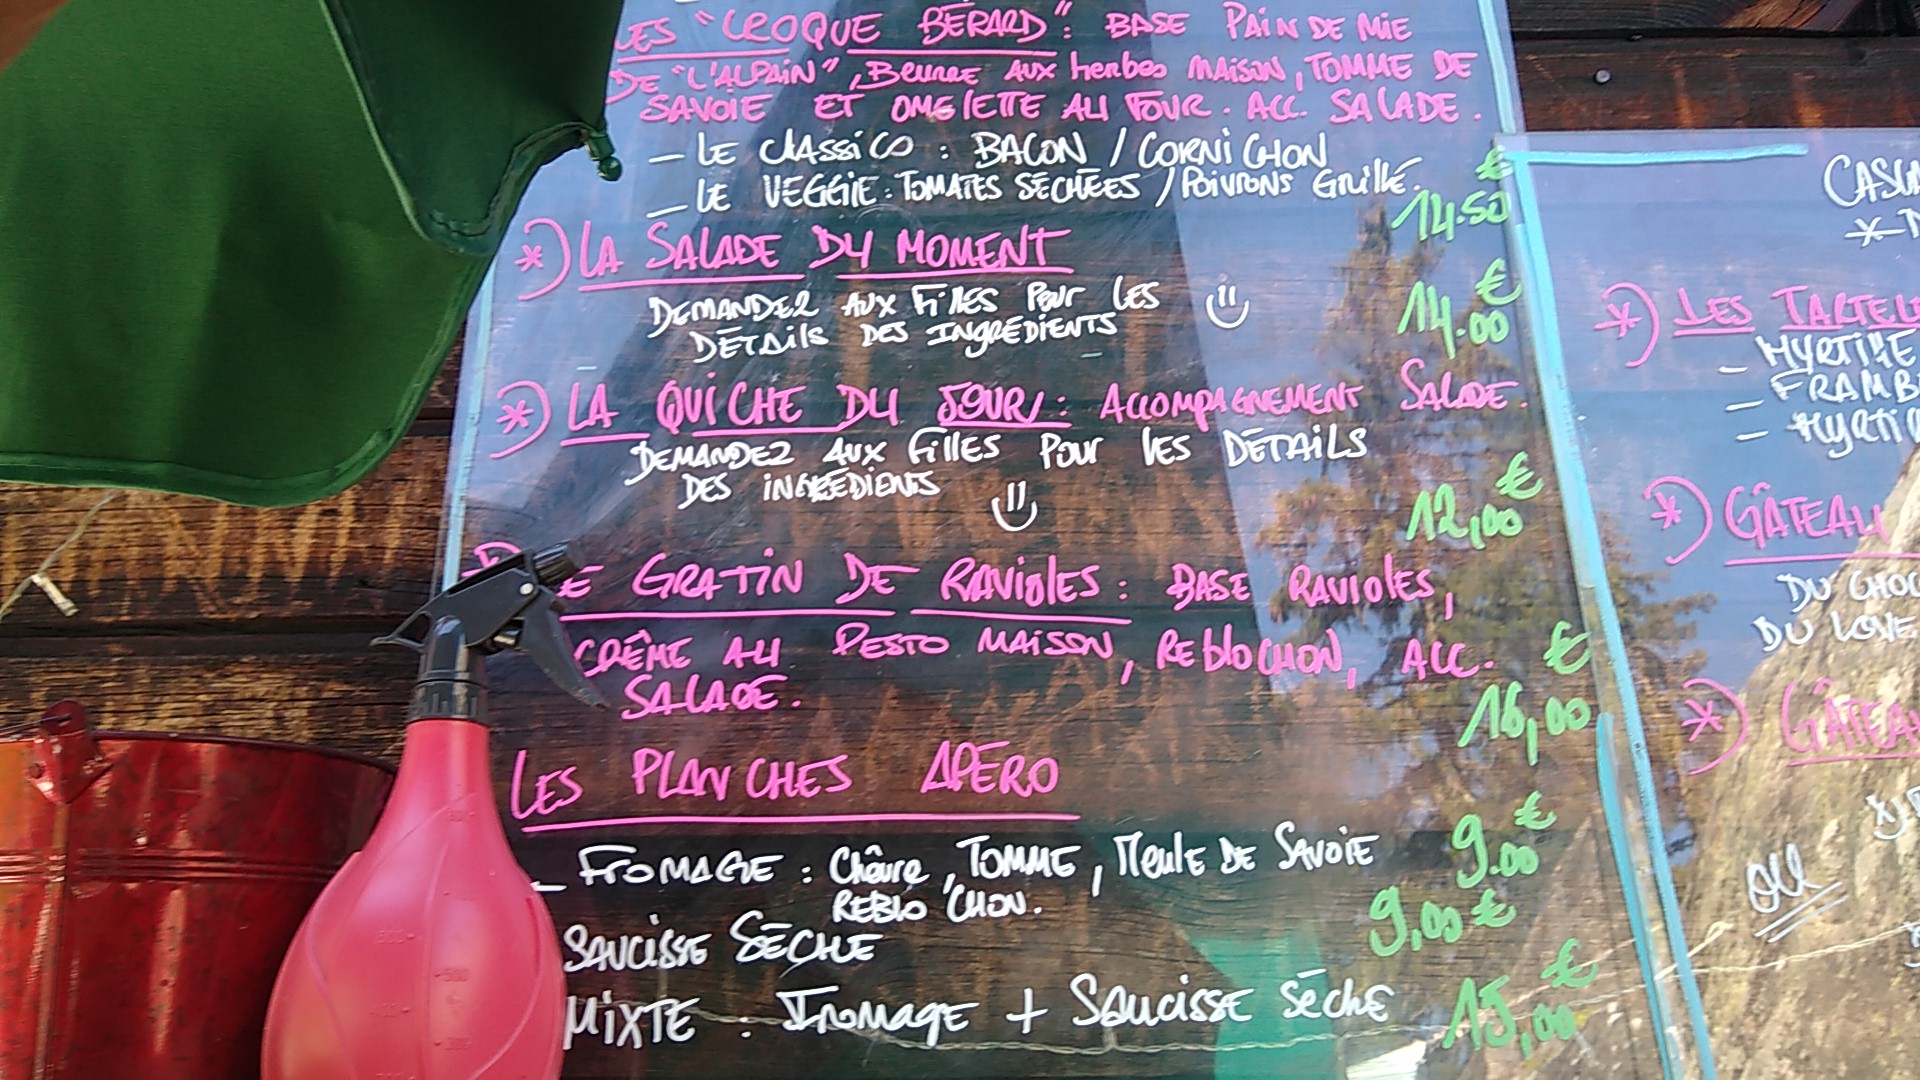 LES "CROQUE BÉRARD": BASE PAIN DE MIE
DE "L'ALPAIN", BEURRE AUX herbes MAISON, TOMME DE
SAVOIE ET OMELETTE AU FOUR. ACC. SALADE.
– LE CLASSICO : BACON / CORNICHON
– LE VEGGIE : TOMATES SÉCHÉES / POIVRONS GRILLÉ.
€
14.50
*) LA SALADE DU MOMENT
DEMANDEZ AUX FILLES POUR LES
DÉTAILS DES INGRÉDIENTS
€
14.00
*) LA QUICHE DU JOUR : ACCOMPAGNEMENT SALADE.
DEMANDEZ AUX FILLES POUR LES DÉTAILS
DES INGRÉDIENTS
€
12,00
GRATIN DE RAVIOLES : BASE RAVIOLES,
CRÊME AU PESTO MAISON, REBLOCHON, ACC.
SALADE.
€
16,00
LES PLANCHES APÉRO
– FROMAGE : Chêvre, TOMME, MEULE DE SAVOIE
REBLO'CHON.
9.00 €
SAUCISSE SÉCHE
9,00 €
MIXTE : FROMAGE + SAUCISSE Séche
15,00 €
*) LES
– MYRTILLE
*) GÂTEAU
DU
DU
*)
OU